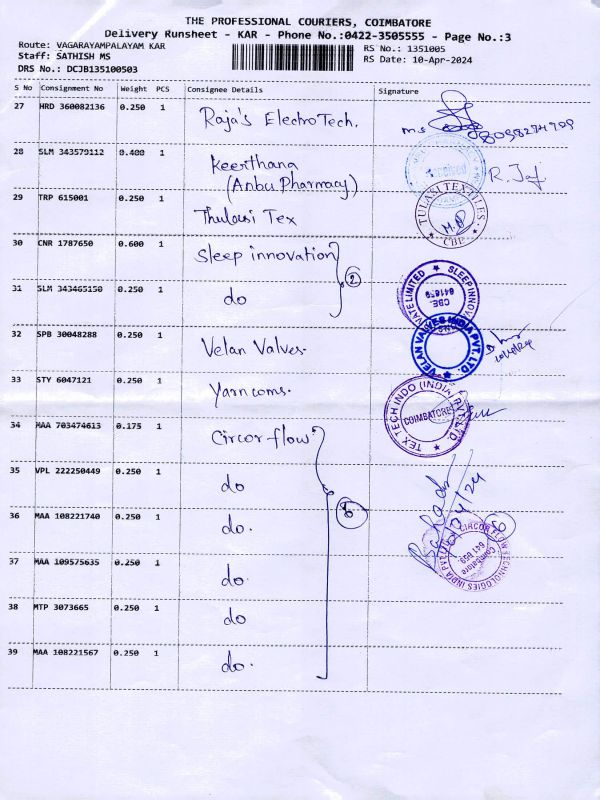 THE PROFESSIONAL COURIERS, COIMBATORE
Delivery Runsheet - KAR - Phone No.:0422-3505555 - Page No.:3
Route: VAGARAYAMPALAYAM KAR
RS No.: 1351005
Staff: SATHISH MS
RS Date: 10-Apr-2024
DRS No.: DCJB135100503
S No Consignment No Weight PCS Consignee Details Signature
27 HRD 360082136 0.250 1 Raja's ElectroTech.
28 SLM 343579112 0.400 1 Keerthana
(Anbu Pharmacy)
Received
R. Jaf
29 TRP 615001 0.250 1 Thulasi Tex
TULASI TEXTILES
CBE
30 CNR 1787650 0.600 1 Sleep innovation
2
31 SLM 343465150 0.250 1 do
SLEEP INNOVATE LIMITED
CBE.
32 SPB 30048288 0.250 1 Velan Valves.
VELAN VALVES INDIA PVT. LTD.
33 STY 6047121 0.250 1 Yarncoms.
TEX TECH INDO (INDIA) PVT. LTD.
COIMBATORE
34 MAA 703474613 0.175 1 Circor flow
35 VPL 222250449 0.250 1 do
36 MAA 108221740 0.250 1 do.
6
CIRCOR FLOW TECHNOLOGIES INDIA PVT LTD
Coimbatore
641 659.
37 MAA 109575635 0.250 1 do.
38 MTP 3073665 0.250 1 do
39 MAA 108221567 0.250 1 do.